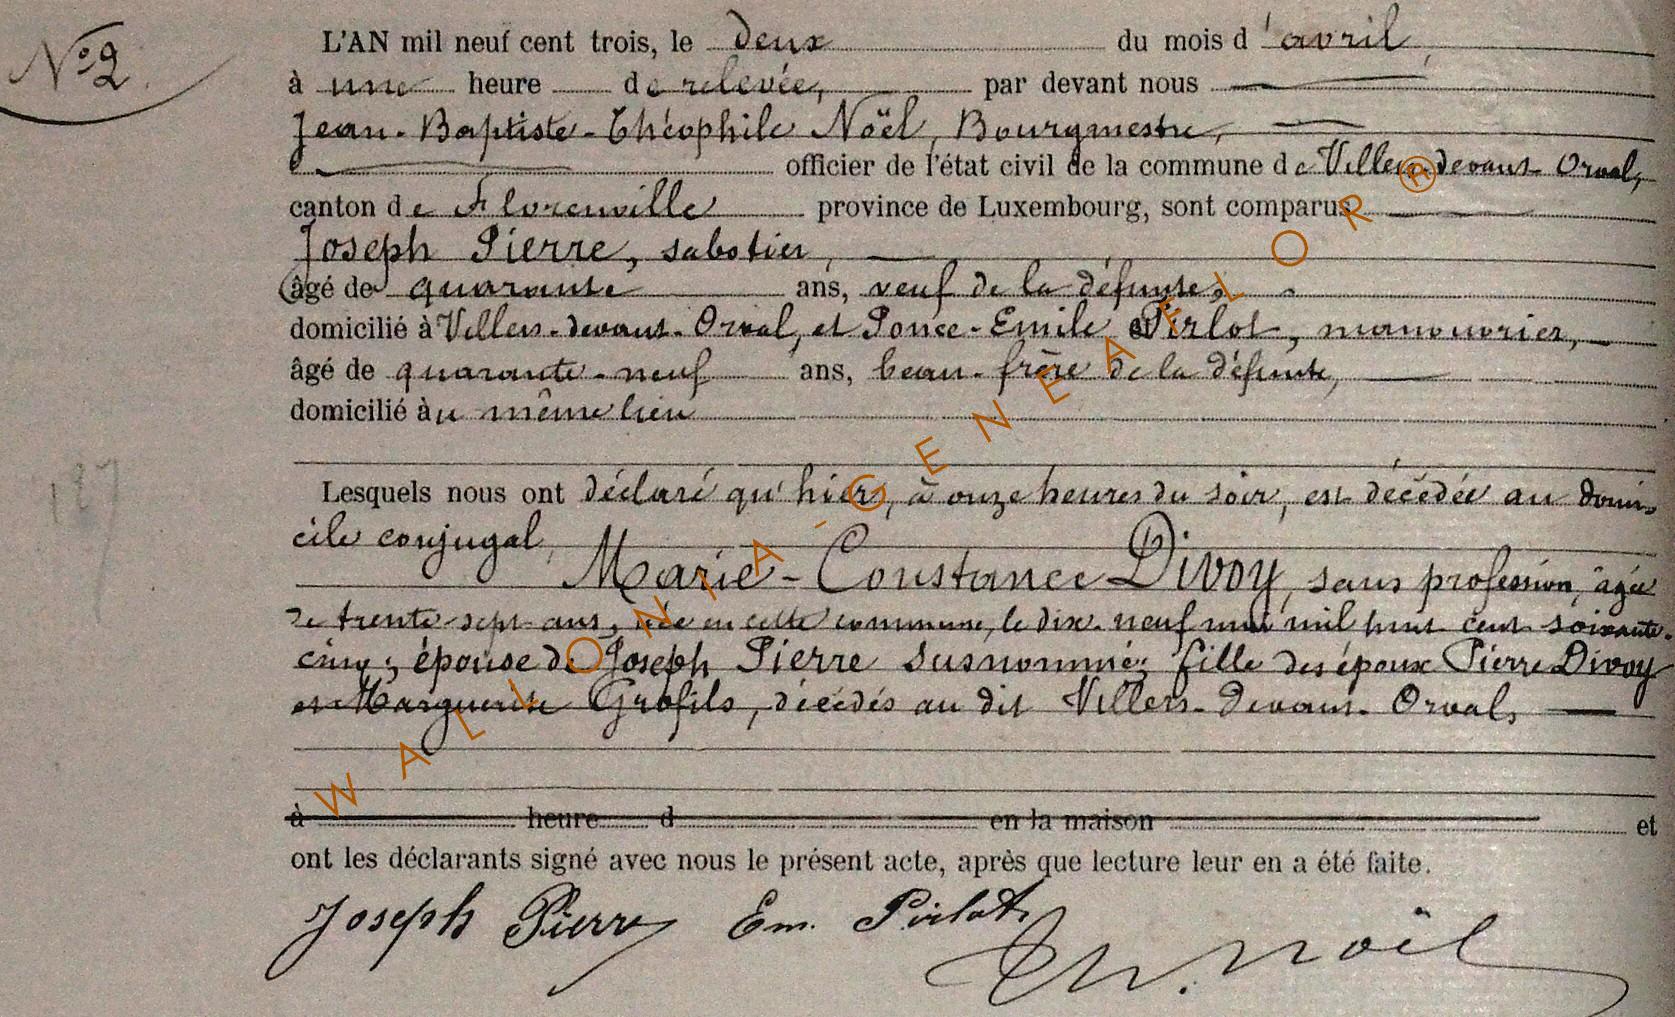 N° 2
L'AN mil neuf cent trois, le deux du mois d'avril,
à une heure de relevée, par devant nous
Jean-Baptiste-Théophile Noël, Bourgmestre,
officier de l'état civil de la commune de Villers-devant-Orval,
canton de Florenville province de Luxembourg, sont comparus
Joseph Pierre, sabotier,
âgé de quarante ans, veuf de la défunte,
domicilié à Villers-devant-Orval, et Ponce-Emile Pirlot, manouvrier,
âgé de quarante-neuf ans, beau-frère de la défunte,
domicilié au même lieu
Lesquels nous ont déclaré qu'hier, à onze heures du soir, est décédée au domi-
cile conjugal,
Marie-Constance Divoy, sans profession, âgée
de trente-sept ans, née en cette commune, le dix-neuf mai mil huit cent soixante-
cinq; épouse de Joseph Pierre susnommé; fille des époux Pierre Divoy
et Marguerite Grofils, décédés au dit Villers-devant-Orval,
à heure d en la maison et
ont les déclarants signé avec nous le présent acte, après que lecture leur en a été faite.
Joseph Pierre Em. Pirlot
Th. Noël
WALLONIA-GENEAFLOR®